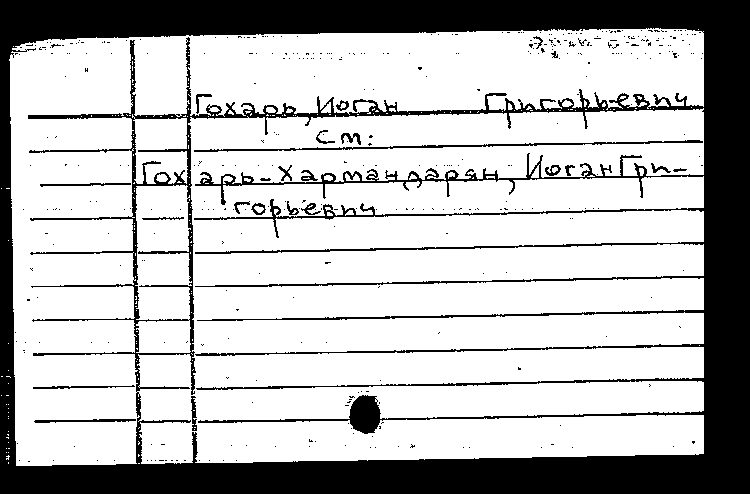 Гохарь, Иоган Григорьевич
см:
Гохарь-Хармандарян, Иоган Гри-
горьевич